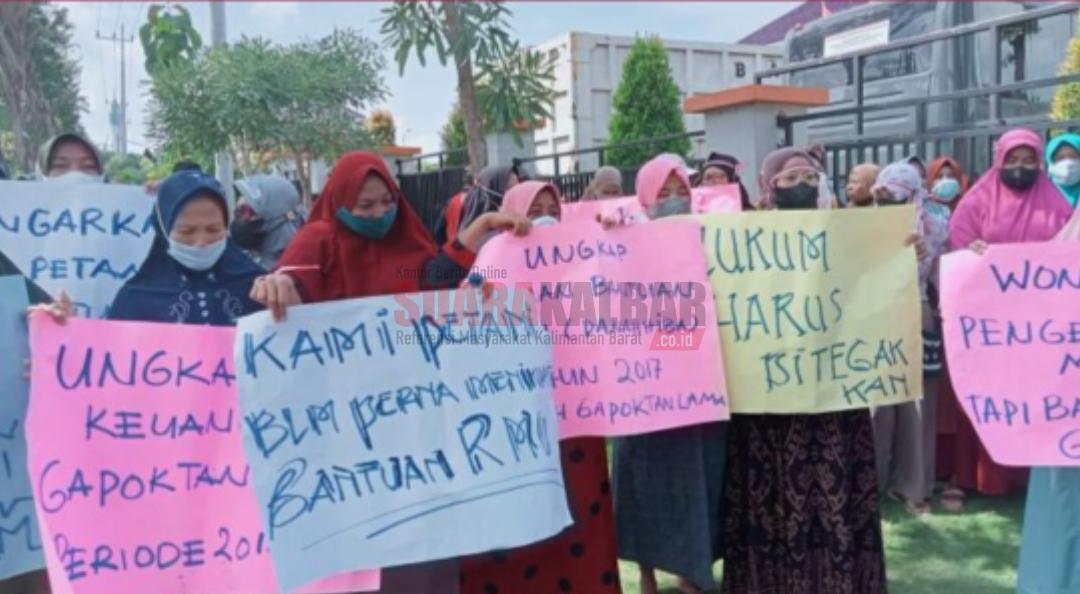 NGARKA
PETAN
UNGKA
KEUAN
GAPOKTAN
PERIODE 201
KAMI PETANI
BLM PERNA MENIKMA
BANTUAN RMU
UNGKAP
BANTUAN
HUN 2017
GAPOKTAN LAMA
HUKUM
HARUS
DI TEGAK
KAN
WON
PENGE
M
TAPI BA
G
B
Kantor Berita Online
SUARAKALBAR
.co.id
Referensi Masyarakat Kalimantan Barat